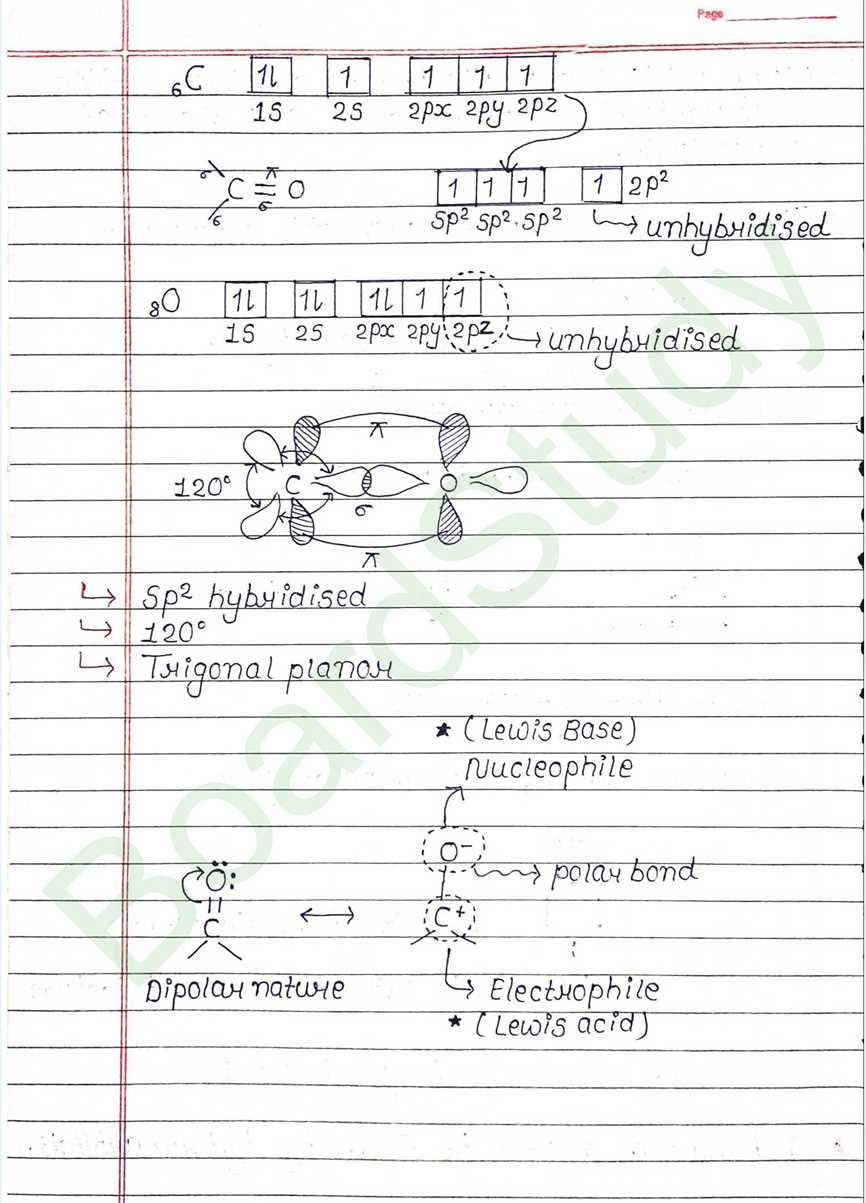 Page
₆C 1l 1 1 1 1
1S 2S 2px 2py 2pz
σ C = O π σ σ
1 1 1 1 2p²
Sp² Sp² Sp² unhybridised
₈O 1l 1l 1l 1 1
1S 2S 2px 2py 2pz unhybridised
π
120° C O
σ
π
Sp² hybridised
120°
Trigonal planar
★ (Lewis Base)
Nucleophile
O⁻
polar bond
Ö:
C
C⁺
Dipolar nature
Electrophile
★ (Lewis acid)
BoardStudy